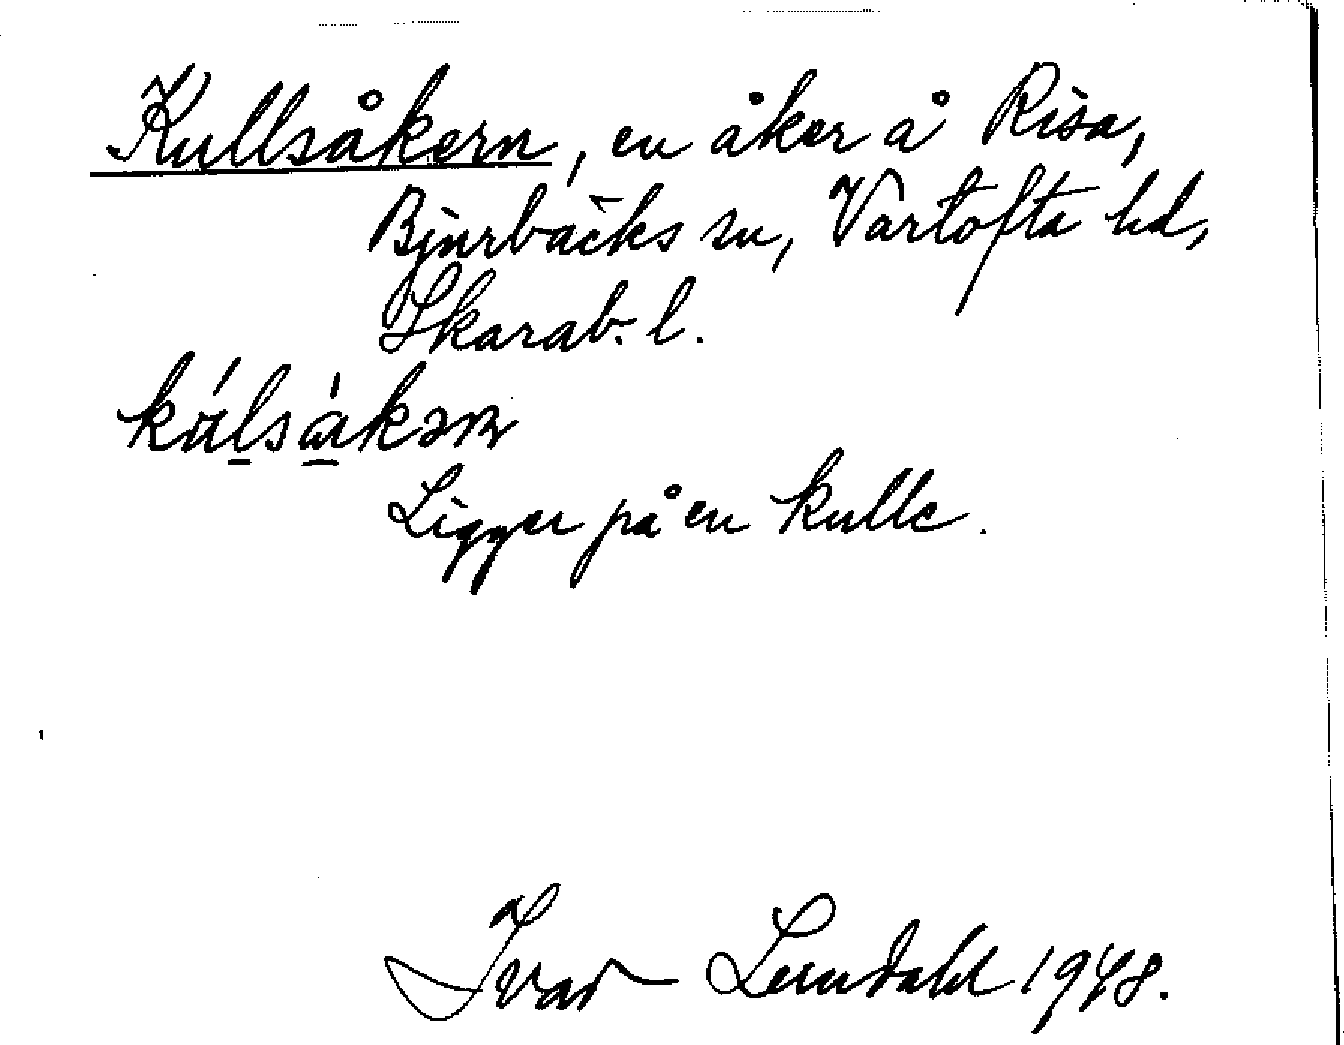 Kullsåkern, en åker å Risa,
Bjurbäcks sn, Vartofta hd,
Skarab. l.
Ligger på en kulle.
Ivar Lundahl 1948.